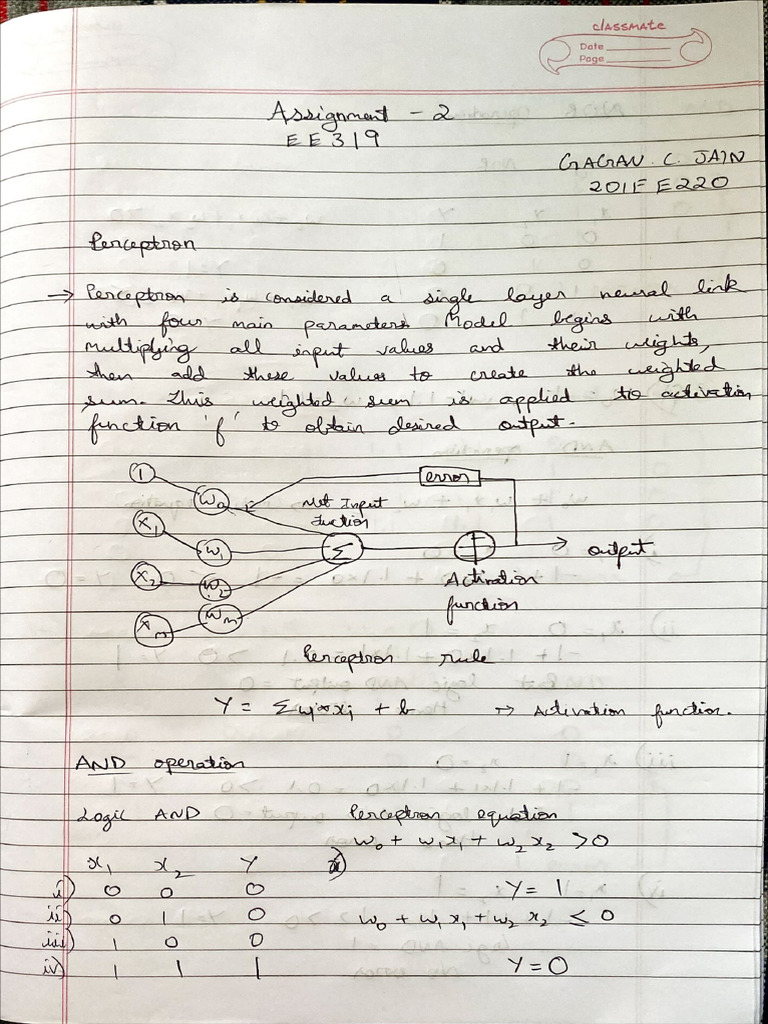 classmate
Date
Page
Assignment - 2
EE319
GAGAN. C. JAIN
201EE220
Perceptron
→ Perceptron is considered a single layer neural link
with four main parameters. Model begins with
multiplying all input values and their weights,
then add these values to create the weighted
sum. This weighted sum is applied to activation
function 'f' to obtain desired output.
1
w₀
error
x₁
Net Input
w₁
Σ
output
x₂
w₂
Activation
function
xₘ
wₘ
Perceptron rule
Y = Σwᵢ*xᵢ + b → Activation function.
AND operation
Logic AND Perceptron equation
w₀ + w₁x₁ + w₂x₂ > 0
x₁ x₂ Y
i) 0 0 0 Y = 1
ii) 0 1 0 w₀ + w₁x₁ + w₂x₂ ≤ 0
iii) 1 0 0
iv) 1 1 1 Y = 0